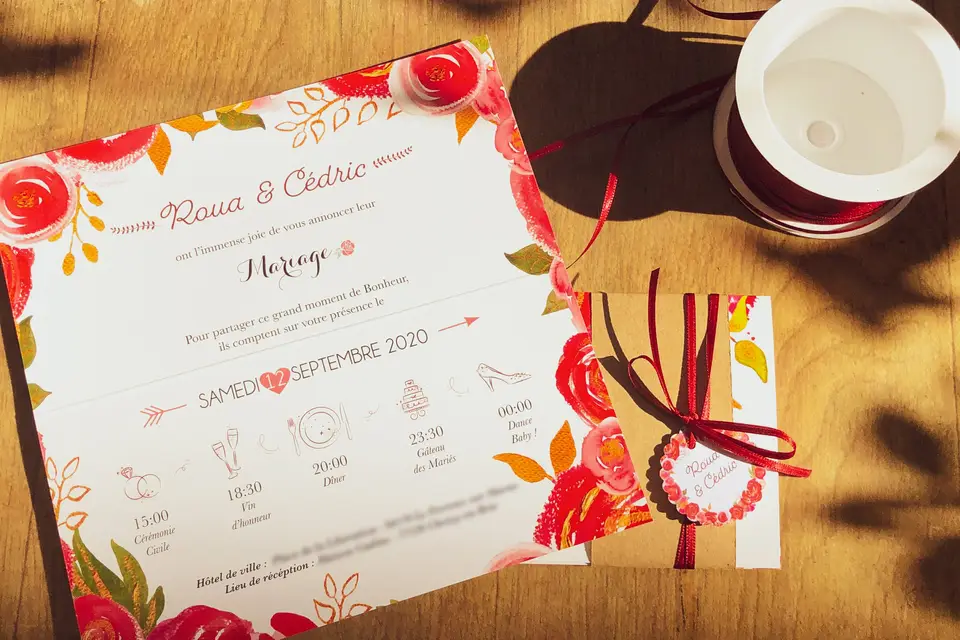 Roua & Cédric
ont l'immense joie de vous annoncer leur
Mariage
Pour partager ce grand moment de Bonheur,
ils comptent sur votre présence le
SAMEDI 12 SEPTEMBRE 2020
15:00
Cérémonie
Civile
18:30
Vin
d'honneur
20:00
Dîner
23:30
Gâteau
des Mariés
00:00
Dance
Baby !
Hôtel de ville :
Lieu de réception :
Roua
& Cédric